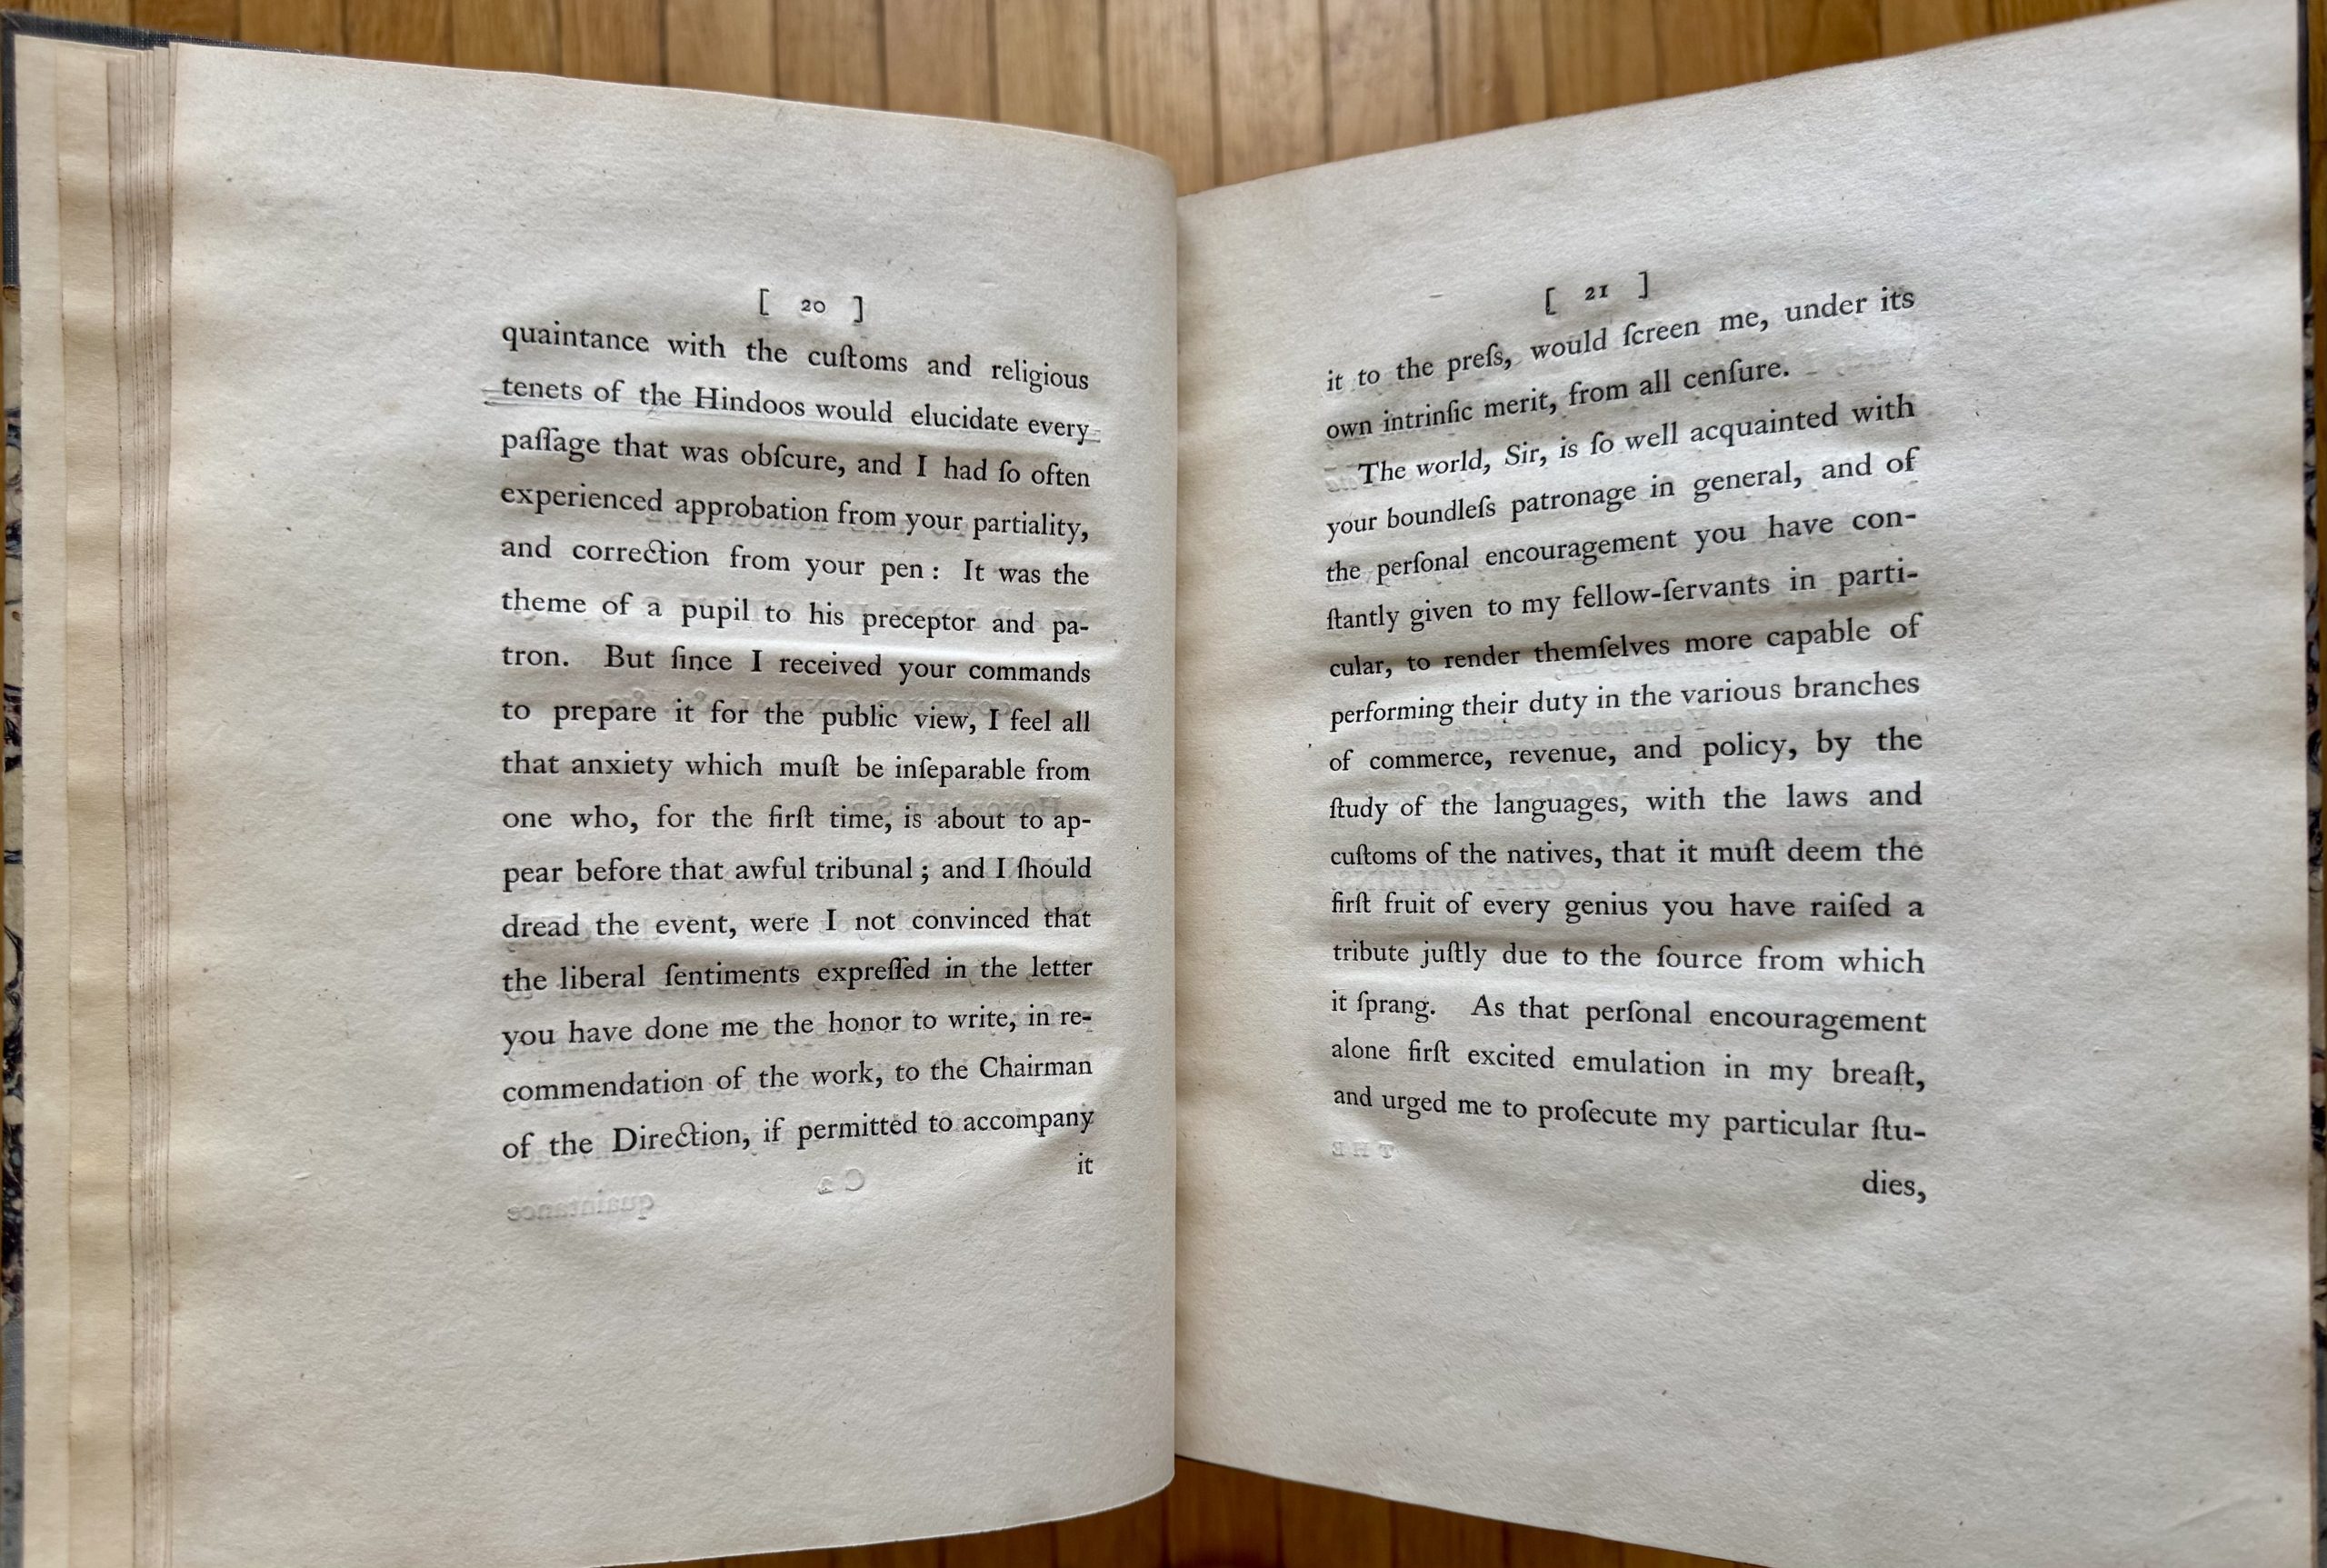 [ 20 ]
quaintance with the cuſtoms and religious
tenets of the Hindoos would elucidate every
paſſage that was obſcure, and I had ſo often
experienced approbation from your partiality,
and correction from your pen : It was the
theme of a pupil to his preceptor and pa-
tron. But ſince I received your commands
to prepare it for the public view, I feel all
that anxiety which muſt be inſeparable from
one who, for the firſt time, is about to ap-
pear before that awful tribunal ; and I ſhould
dread the event, were I not convinced that
the liberal ſentiments expreſſed in the letter
you have done me the honor to write, in re-
commendation of the work, to the Chairman
of the Direction, if permitted to accompany
it
[ 21 ]
it to the preſs, would ſcreen me, under its
own intrinſic merit, from all cenſure.
The world, Sir, is ſo well acquainted with
your boundleſs patronage in general, and of
the perſonal encouragement you have con-
ſtantly given to my fellow-ſervants in parti-
cular, to render themſelves more capable of
performing their duty in the various branches
of commerce, revenue, and policy, by the
ſtudy of the languages, with the laws and
cuſtoms of the natives, that it muſt deem the
firſt fruit of every genius you have raiſed a
tribute juſtly due to the ſource from which
it ſprang. As that perſonal encouragement
alone firſt excited emulation in my breaſt,
and urged me to proſecute my particular ſtu-
dies,